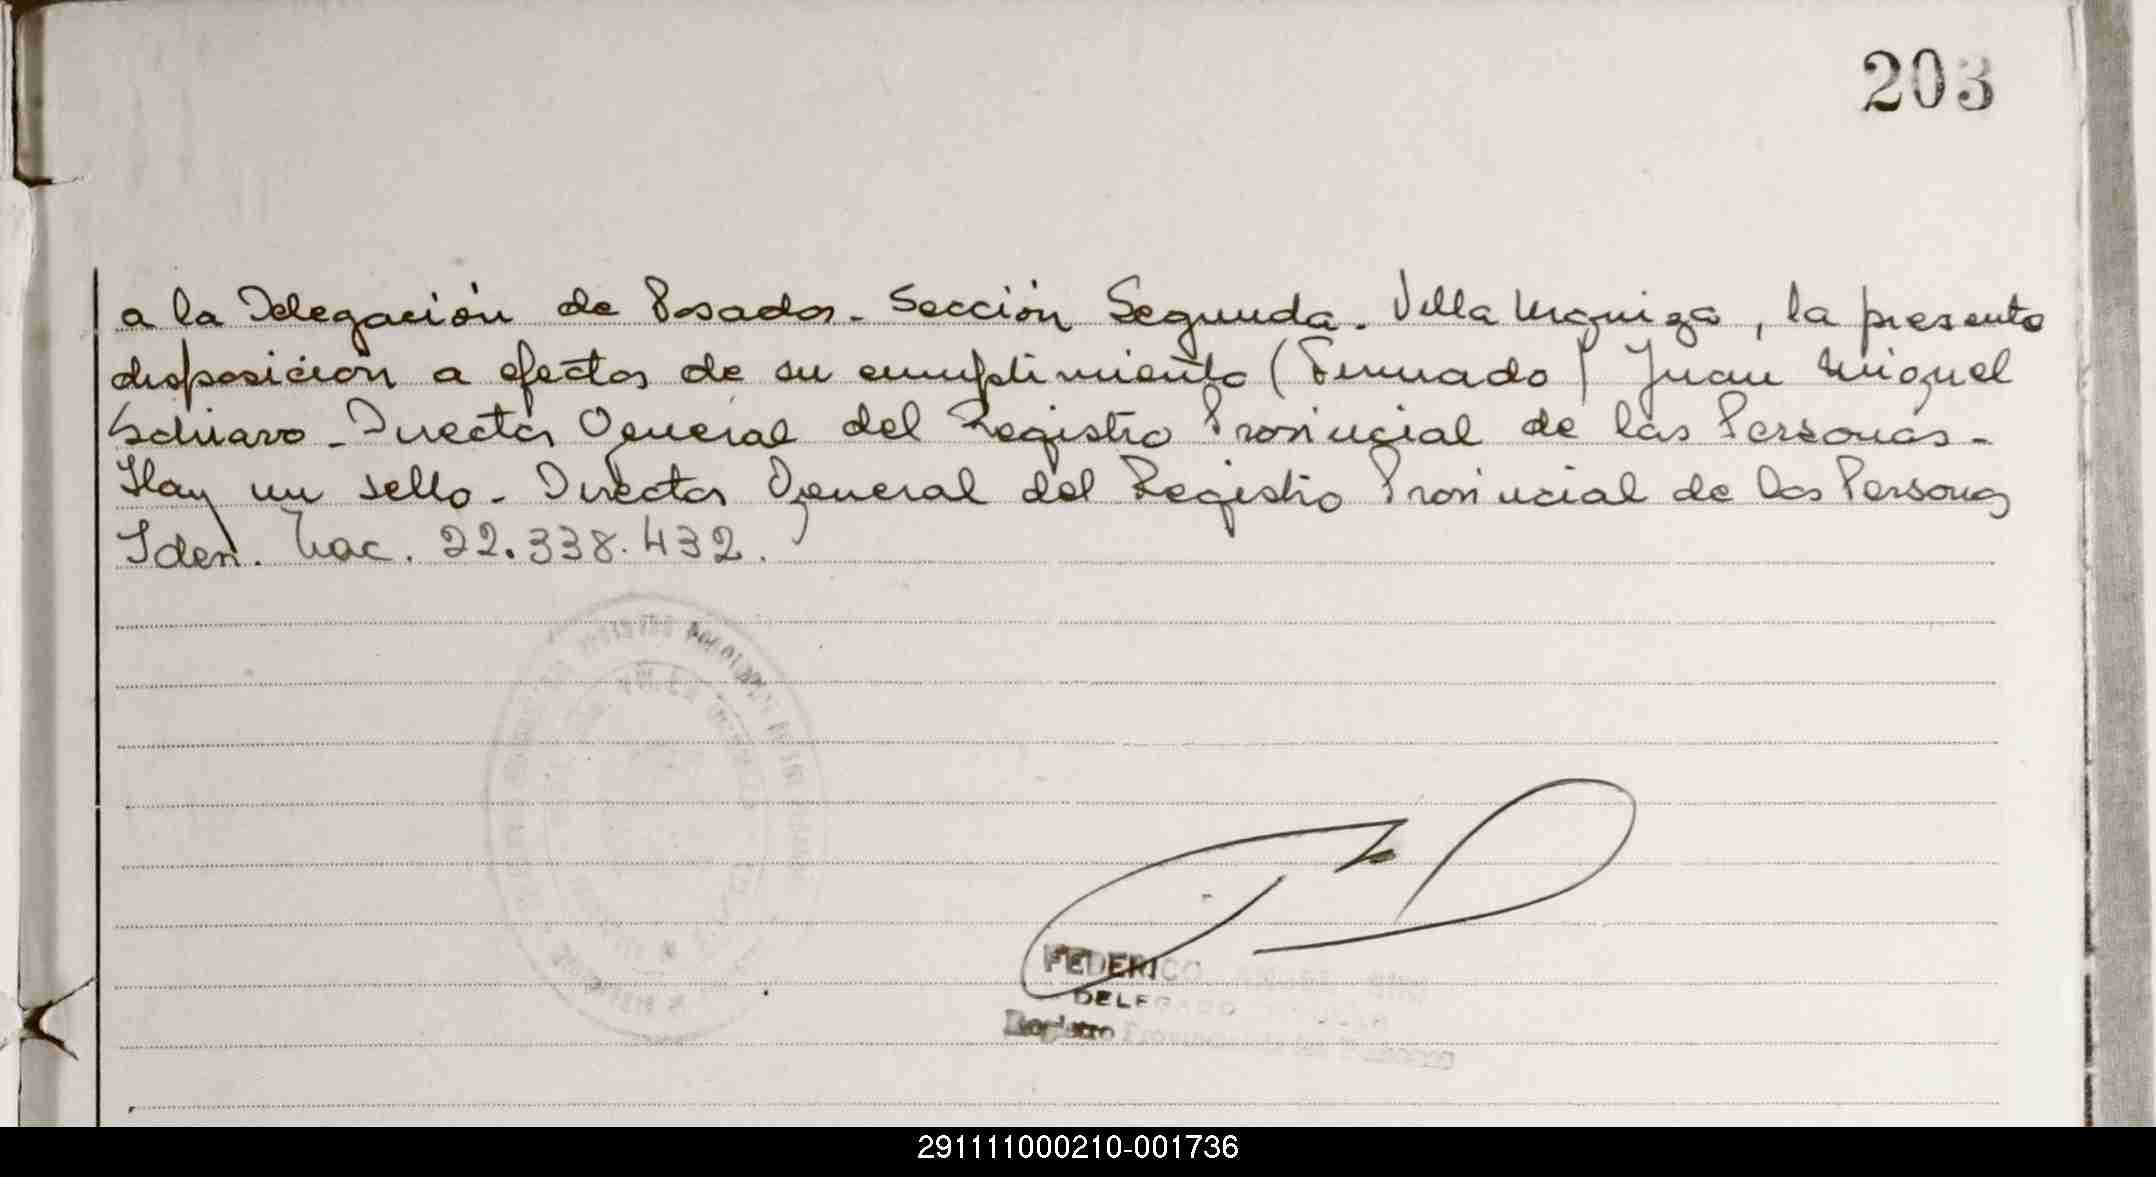 203
a la Delegación de Posadas - Sección Segunda - Villa Urquiza, la presente
disposición a efectos de su cumplimiento (Firmado) Juan Miguel
Schiavo - Director General del Registro Provincial de las Personas -
Hay un sello - Director General del Registro Provincial de las Personas
Iden. Nac. 22.338.432.
FEDERICO
DELEGADO
Registro
291111000210-001736